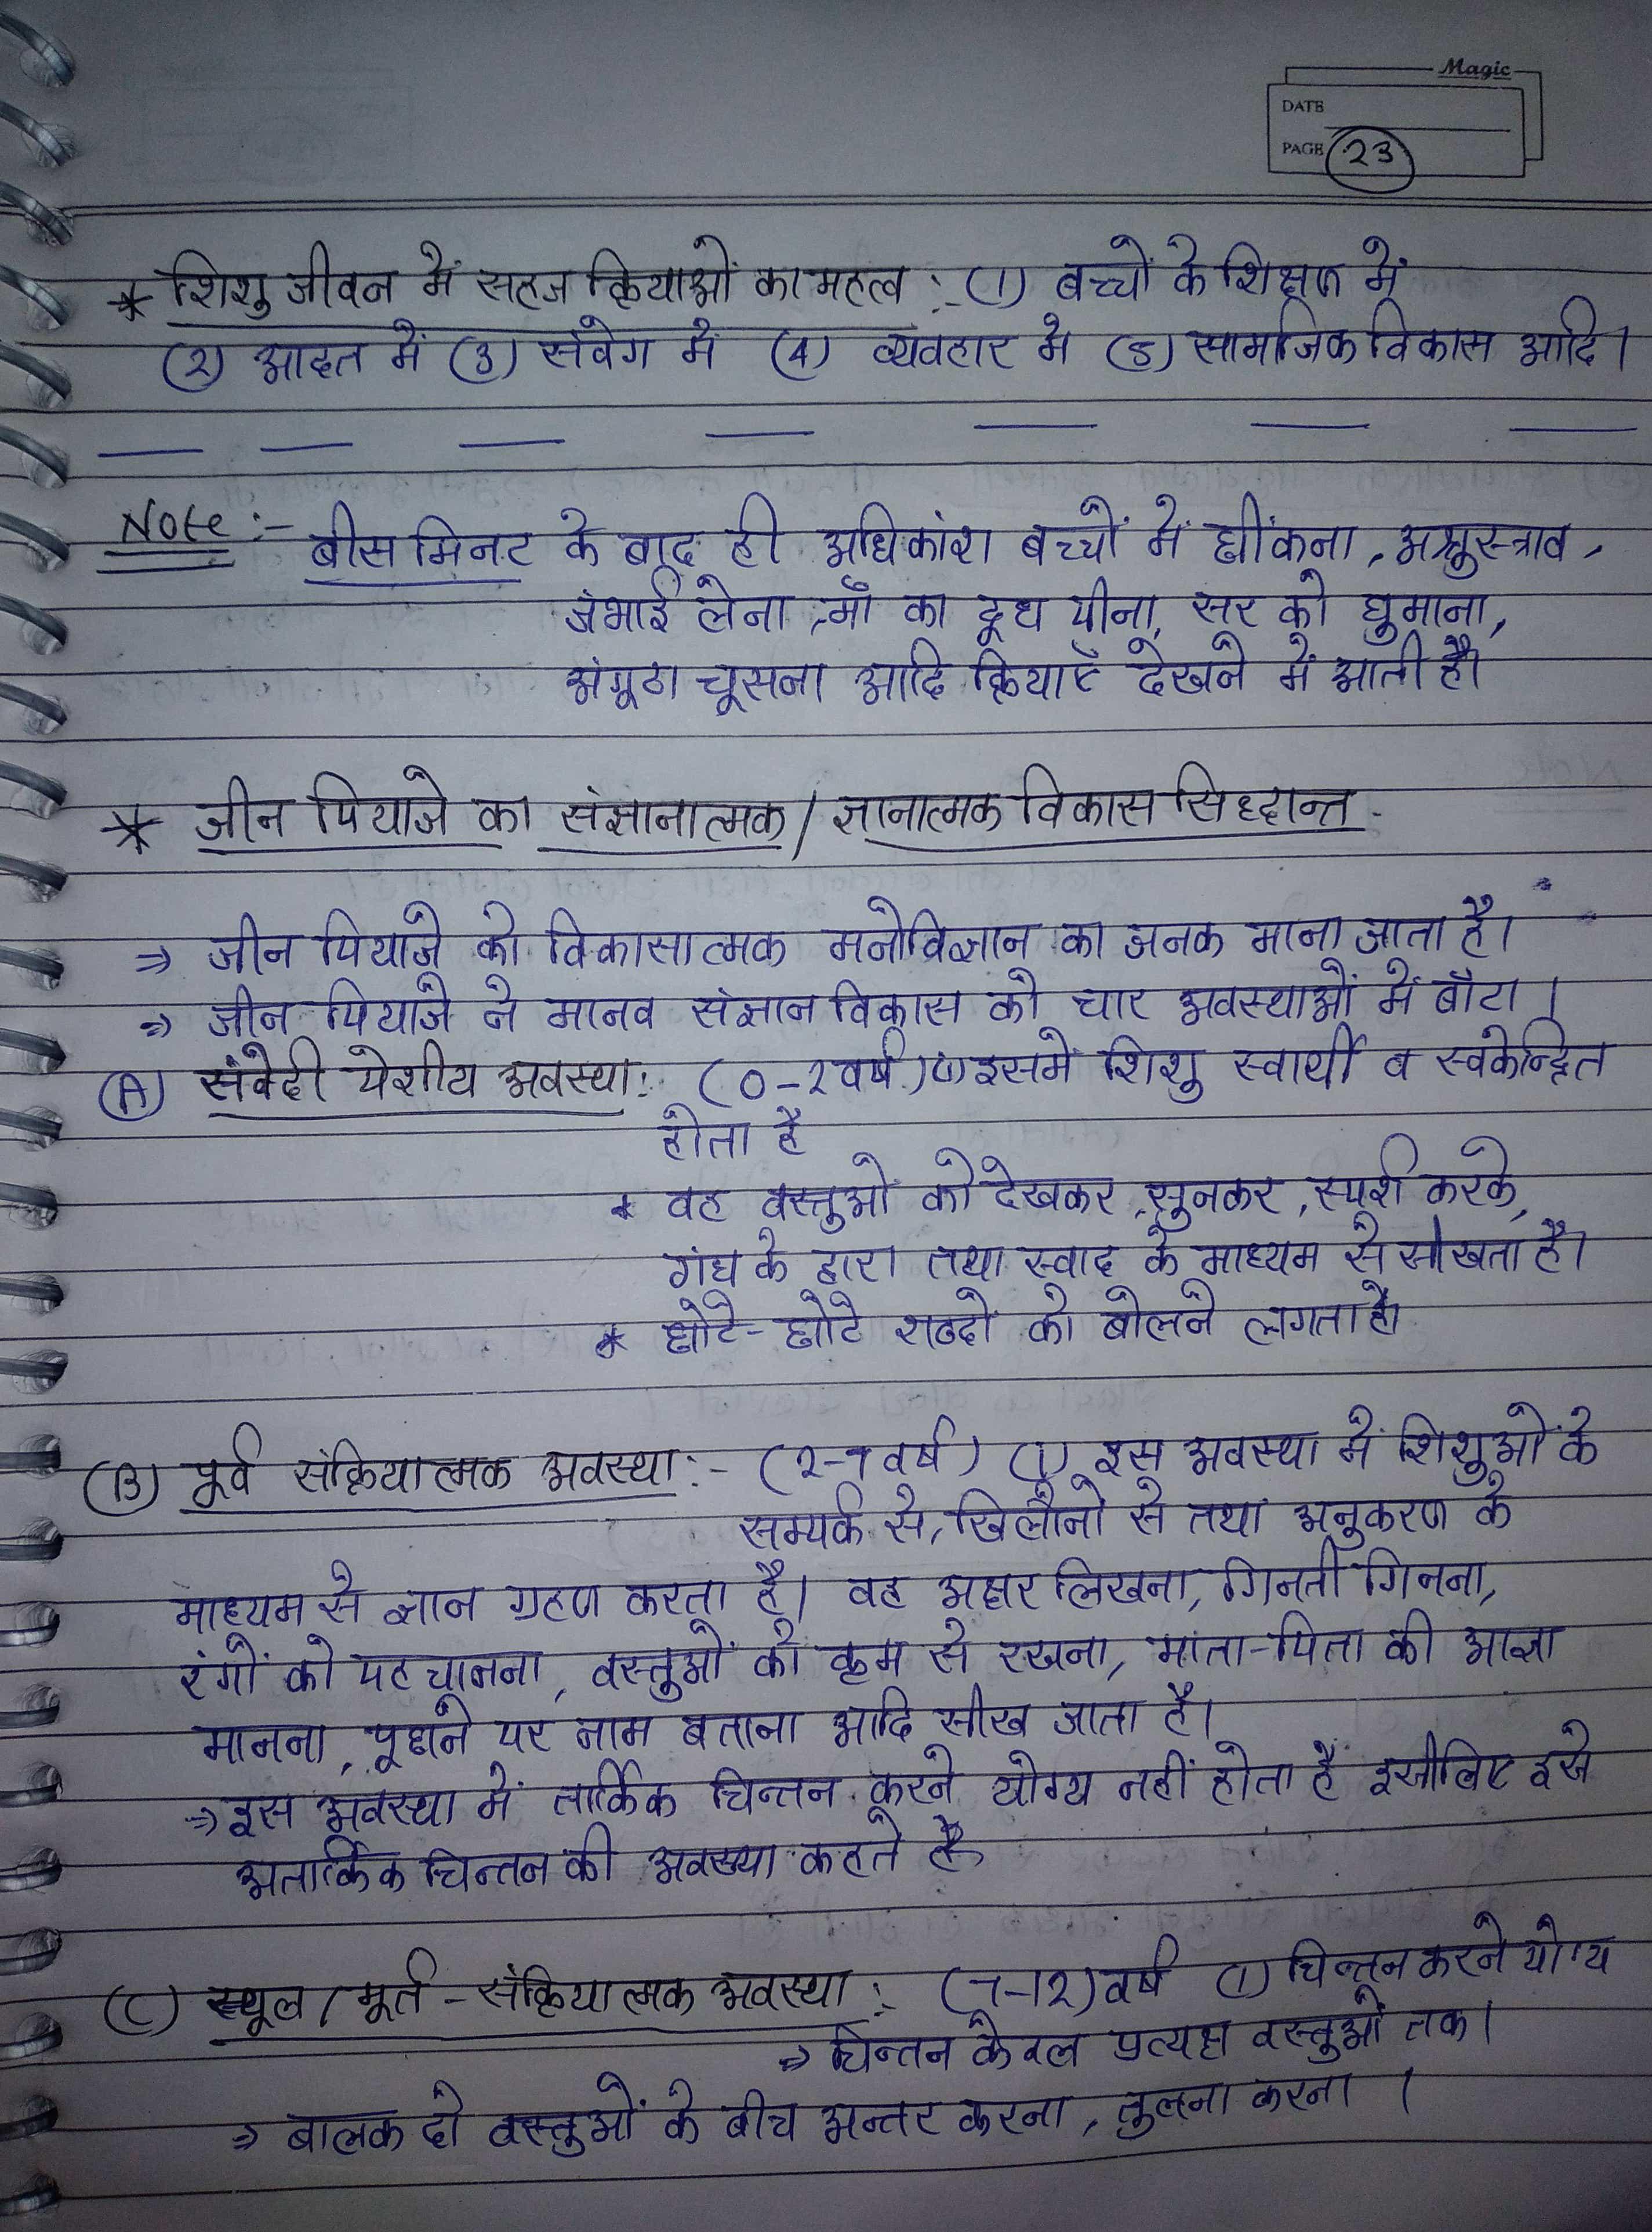 Magic
DATE
PAGE 23
* शिशु जीवन में सहज क्रियाओं का महत्व :- (1) बच्चों के शिक्षण में
(2) आदत में (3) संवेग में (4) व्यवहार में (5) सामाजिक विकास आदि।
Note :- बीस मिनट के बाद ही अधिकांश बच्चों में छींकना, अश्रुस्त्राव,
जंभाई लेना, माँ का दूध पीना, सर को घुमाना,
अंगूठा चूसना आदि क्रियाएँ देखने में आती है।
* जीन पियाजे का संज्ञानात्मक / ज्ञानात्मक विकास सिद्धान्त -
⇒ जीन पियाजे को विकासात्मक मनोविज्ञान का जनक माना जाता है।
⇒ जीन पियाजे ने मानव संज्ञान विकास को चार अवस्थाओं में बाँटा।
(A) संवेदी पेशीय अवस्था :- (0-2 वर्ष) (1) इसमें शिशु स्वार्थी व स्वकेन्द्रित
होता है
* वह वस्तुओं को देखकर, सुनकर, स्पर्श करके,
गंध के द्वारा तथा स्वाद के माध्यम से सीखता है।
* छोटे-छोटे शब्दों को बोलने लगता है।
(B) पूर्व संक्रियात्मक अवस्था :- (2-7 वर्ष) (1) इस अवस्था में शिशुओं के
सम्पर्क से, खिलौनों से तथा अनुकरण के
माध्यम से ज्ञान ग्रहण करता है। वह अक्षर लिखना, गिनती गिनना,
रंगों को पहचानना, वस्तुओं को क्रम से रखना, माता-पिता की आज्ञा
मानना, पूछने पर नाम बताना आदि सीख जाता है।
⇒ इस अवस्था में तार्किक चिन्तन करने योग्य नहीं होता है इसीलिए इसे
अतार्किक चिन्तन की अवस्था कहते है
(C) स्थूल / मूर्त - संक्रियात्मक अवस्था :- (7-12) वर्ष (1) चिन्तन करने योग्य
⇒ चिन्तन केवल प्रत्यक्ष वस्तुओं तक।
⇒ बालक दो वस्तुओं के बीच अन्तर करना, तुलना करना।